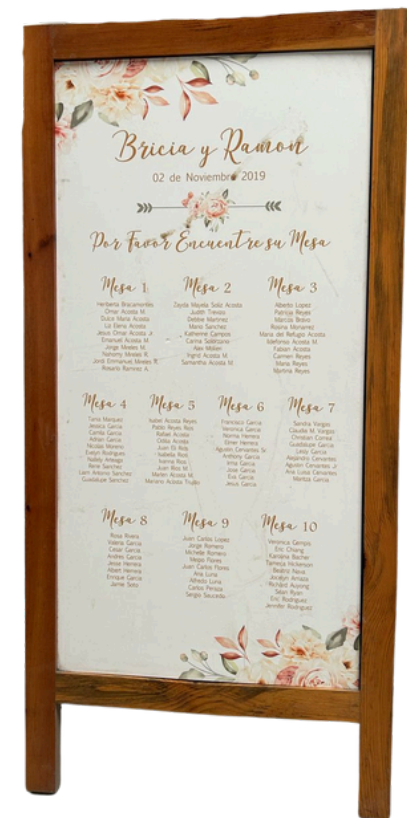 Bricia y Ramon
02 de Noviembre 2019
Por Favor Encuentre su Mesa
Mesa 1
Heriberta Bracamontes
Omar Acosta M.
Dulce Maria Acosta
Liz Elena Acosta
Jesus Omar Acosta Jr.
Emanuel Acosta M.
Jorge Mireles M.
Nahomy Mireles R.
Jordi Emmanuel Mireles R.
Rosario Ramirez A.
Mesa 2
Zayda Mayela Soliz Acosta
Judith Trevizo
Debbie Martinez
Mario Sanchez
Katherine Campos
Carina Solorzano
Alex Millien
Ingrid Acosta M.
Samantha Acosta M.
Mesa 3
Alberto Lopez
Patricia Reyes
Marcos Bravo
Rosina
Maria del Refugio Acosta
Ildefonso Acosta M.
Fabian Acosta
Carmen Reyes
Maria Reyes
Martina Reyes
Mesa 4
Tania Marquez
Jessica Garcia
Camila Garcia
Adrian Garcia
Nicolas Moreno
Evelyn Rodriguez
Nallely Arteaga
Rene Sanchez
Liam Antonio Sanchez
Guadalupe Sanchez
Mesa 5
Isabel Acosta Reyes
Pablo Reyes Rios
Rafael Acosta
Odilia Acosta
Juan Eli Rios
Isabella Rios
Kenna Rios
Juan Rios M.
Marlen Acosta M.
Mariano Acosta Trujillo
Mesa 6
Francisco Garcia
Veronica Garcia
Norma Herrera
Elmer Herrera
Agustin Cervantes Sr.
Anthony Garcia
Irma Garcia
Jose Garcia
Eva Garcia
Jesus Garcia
Mesa 7
Sandra Vargas
Claudia M. Vargas
Christian Correa
Guadalupe Garcia
Lesly Garcia
Alejandro Cervantes
Agustin Cervantes Jr.
Ana Luisa Cervantes
Maritza Garcia
Mesa 8
Rosa Rivera
Valeria Garcia
Cesar Garcia
Andres Garcia
Jesse Herrera
Albert Herrera
Enrique Garcia
Jamie Soto
Mesa 9
Juan Carlos Lopez
Jorge Romero
Michelle Romero
Megan Flores
Juan Carlos Flores
Ana Luna
Alfredo Luna
Carlos Peraza
Sergio Saucedo
Mesa 10
Veronica Campis
Eric Chiang
Karolina Bacher
Tameqa Hickerson
Beatriz Nava
Jocelyn Amaya
Richard Auyong
Sean Ryan
Eric Rodriguez
Jennifer Rodriguez